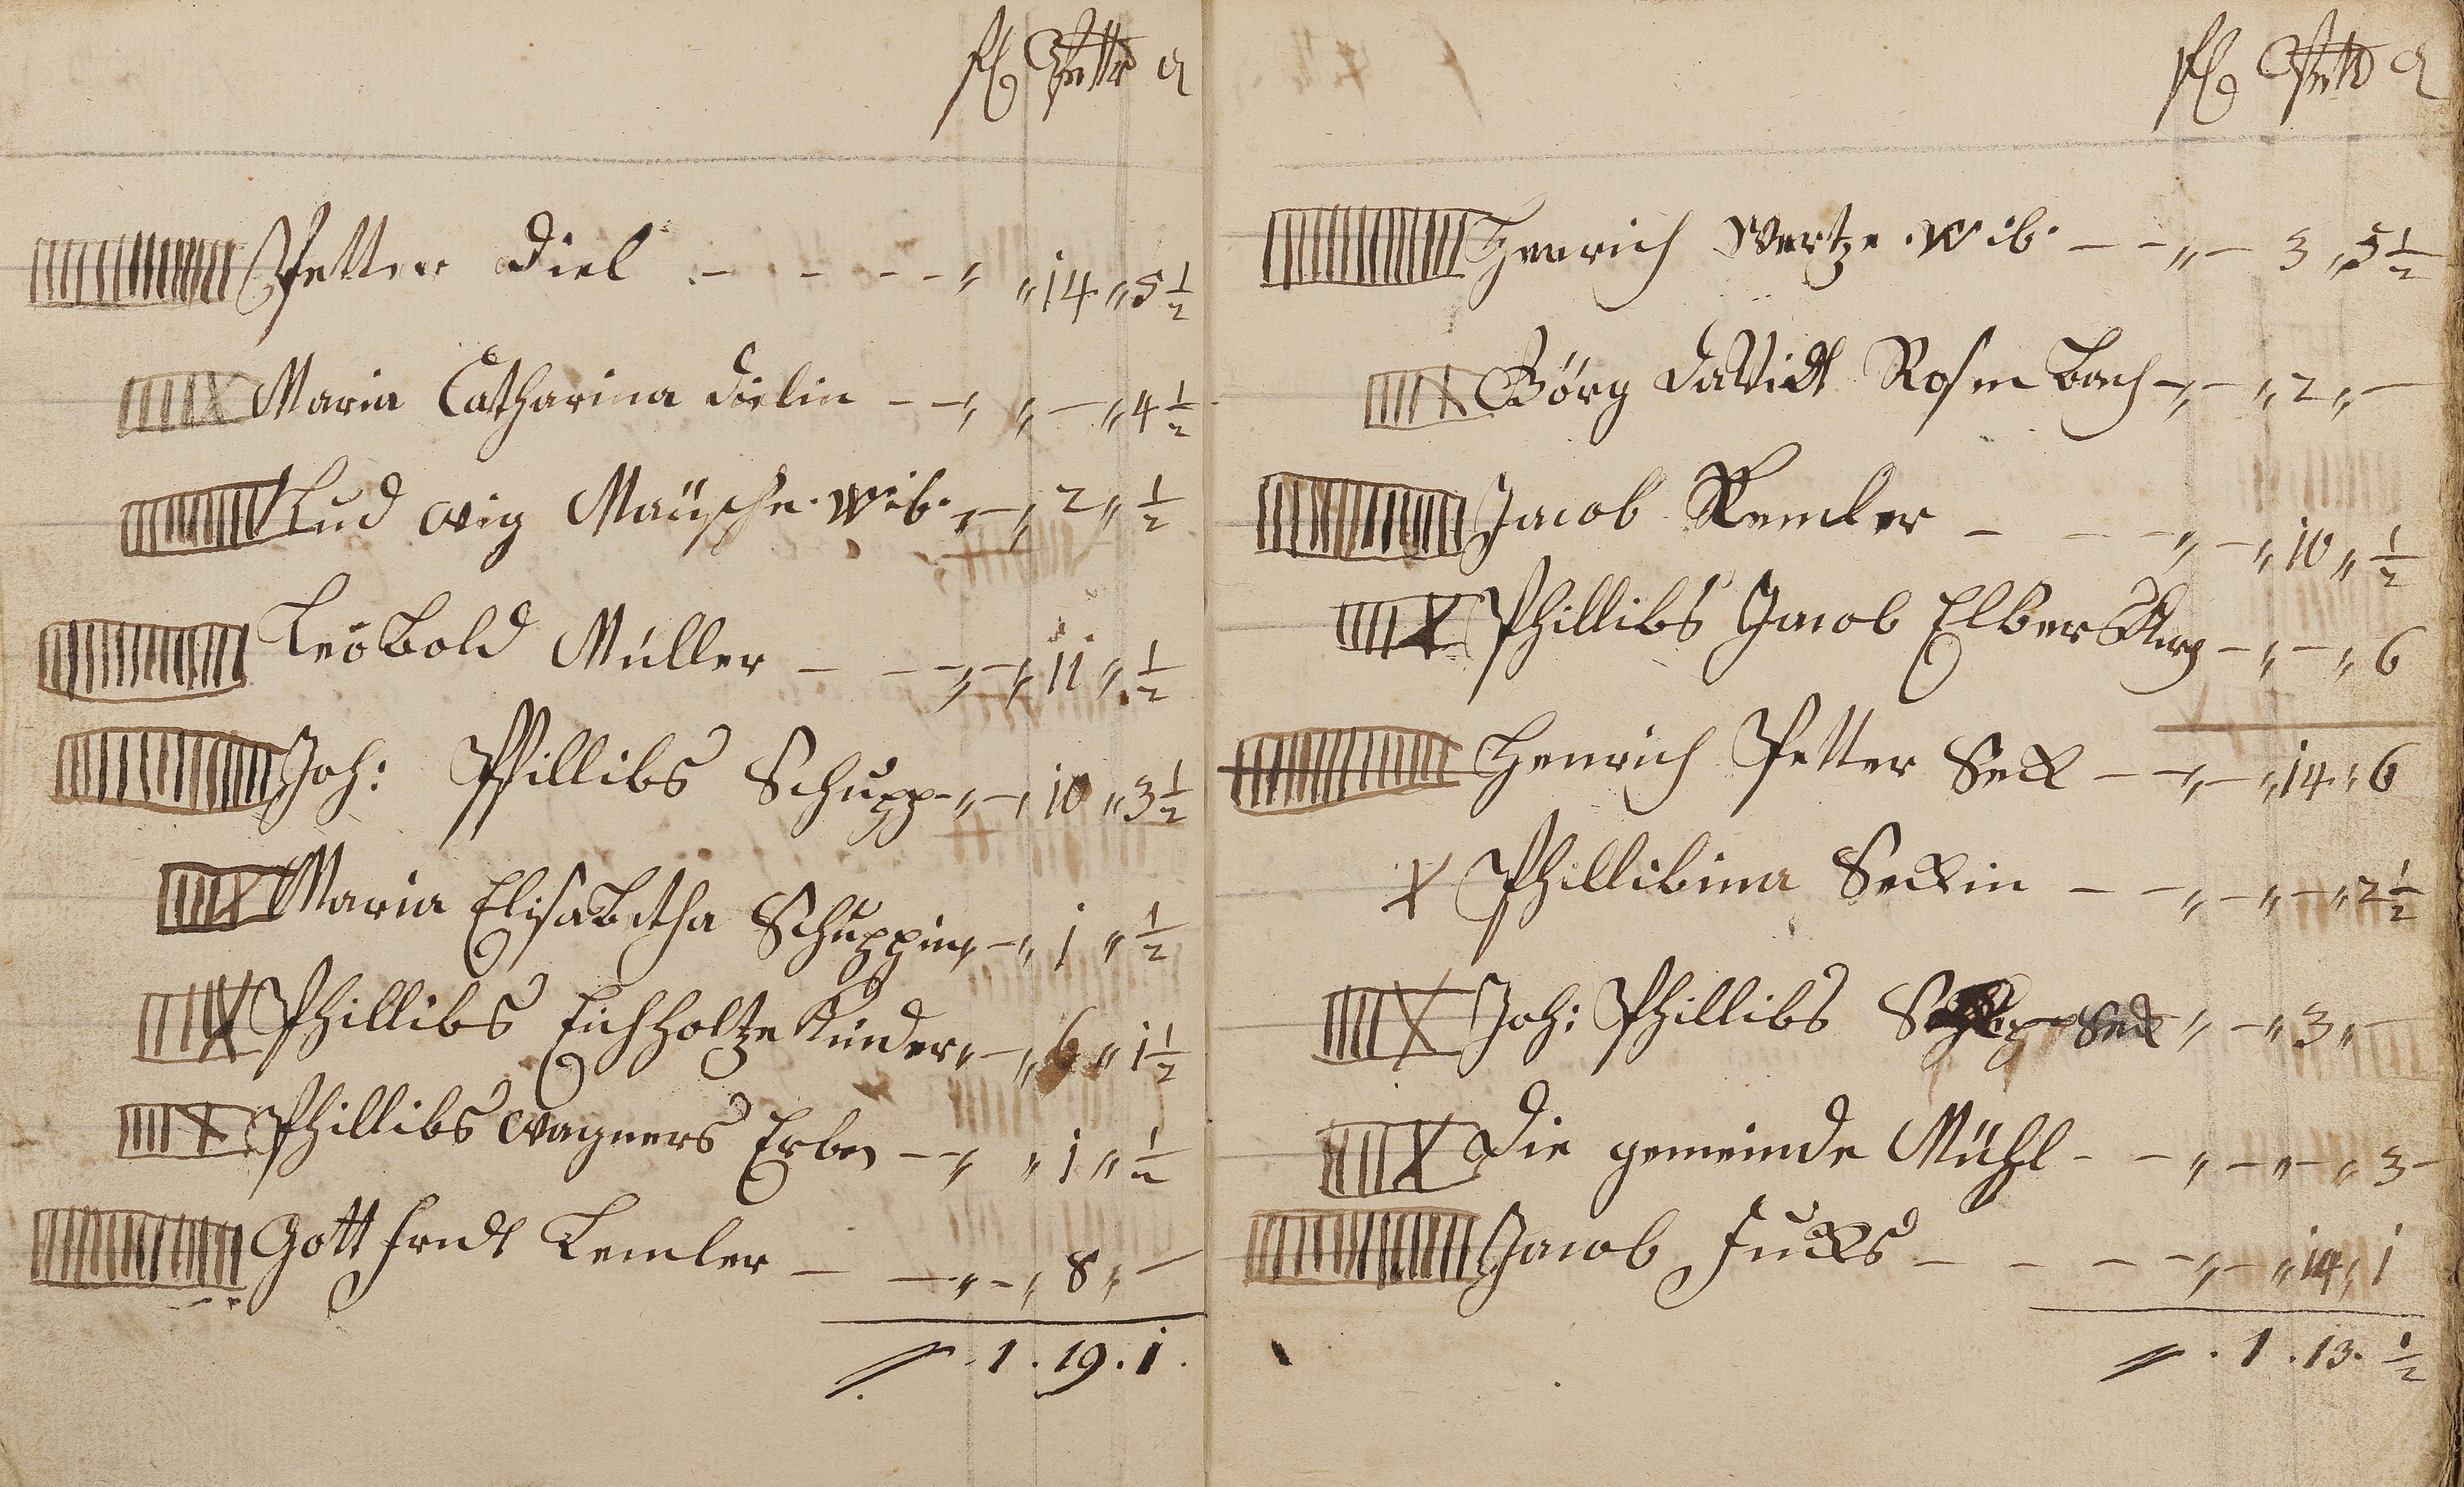 fl
Petter Diel - - - - „ „ 14 „ 5 1/2
Maria Catharina Dielin - - „ „ - „ 4 1/2
Lud wig Mäusche. Wib. - „ 2 „ 1/2
Leobold Müller - - - „ - „ 11 „ 1/2
Joh: Phillibs Schupp - „ - „ 10 „ 3 1/2
Maria Elisabetha Schuppin „ - „ 1 „ 1/2
Phillibs Eichholtze Kinder „ - „ 6 „ 1 1/2
Phillibs Wagners Erben - - „ „ 1 „ 1/2
Gott fridt Lemler - - - „ - „ 8 „ -
1 . 19 . 1 .
fl
Henrich Wertze . Wib . - - „ - 3 „ 5 1/2
Görg Davidt Rosen Bach - „ - „ 2 „ -
Jacob Remler - - - - „ - „ 10 „ 1/2
Phillibs Jacob - „ - „ 6
Henrich Petter Seck - - „ - „ 14 „ 6
Phillibina Seckin - - „ - „ - „ 2 1/2
Joh: Phillibs Seck „ - „ 3 „ -
Die gemeinde Mühl - - „ - „ - „ 3 -
Jacob Fucks - - - - „ - „ 14 „ 1
. 1 . 13 . 1/2